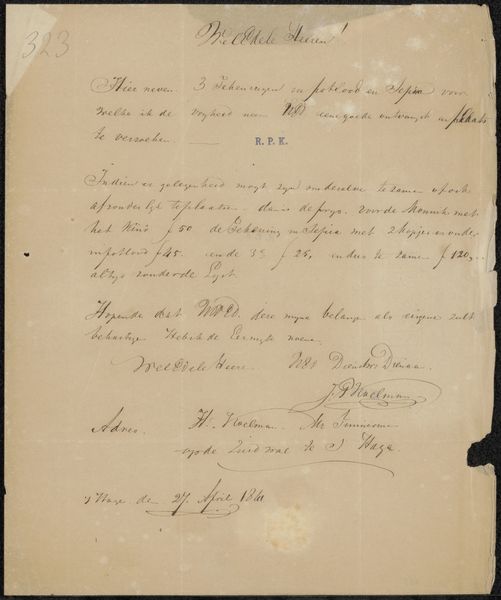 323
WelEdele Heeren!
Hier neven 3 Tekeningen in potlood en Sepia voor
welke ik de vryheid neem UEd eene goede ontvangst en plaats
te verzoeken.
R.P.K.
Indien er gelegenheid mogt zyn om dezelve te zamen of ook
afzonderlyk te plaatsen dan is de prys. voor de Monnik met
het Kind f 50 de Tekening in Sepia met 2 kopjes en onder
in potlood f 45. en de 3e f 25, en dus te zamen f 120,-
altys zonder de Lyst.
Hopende dat UWEd. deze myne belange als eigene zult
behartige Heb ik de Eer my te noeme
WelEdele Heere UEd Dienstw Dienaar
J. P. Koelman
Adres H. Koelman. Mr Timmerman
op de Zuid wal te s Hage
s Hage de 27 April 1841